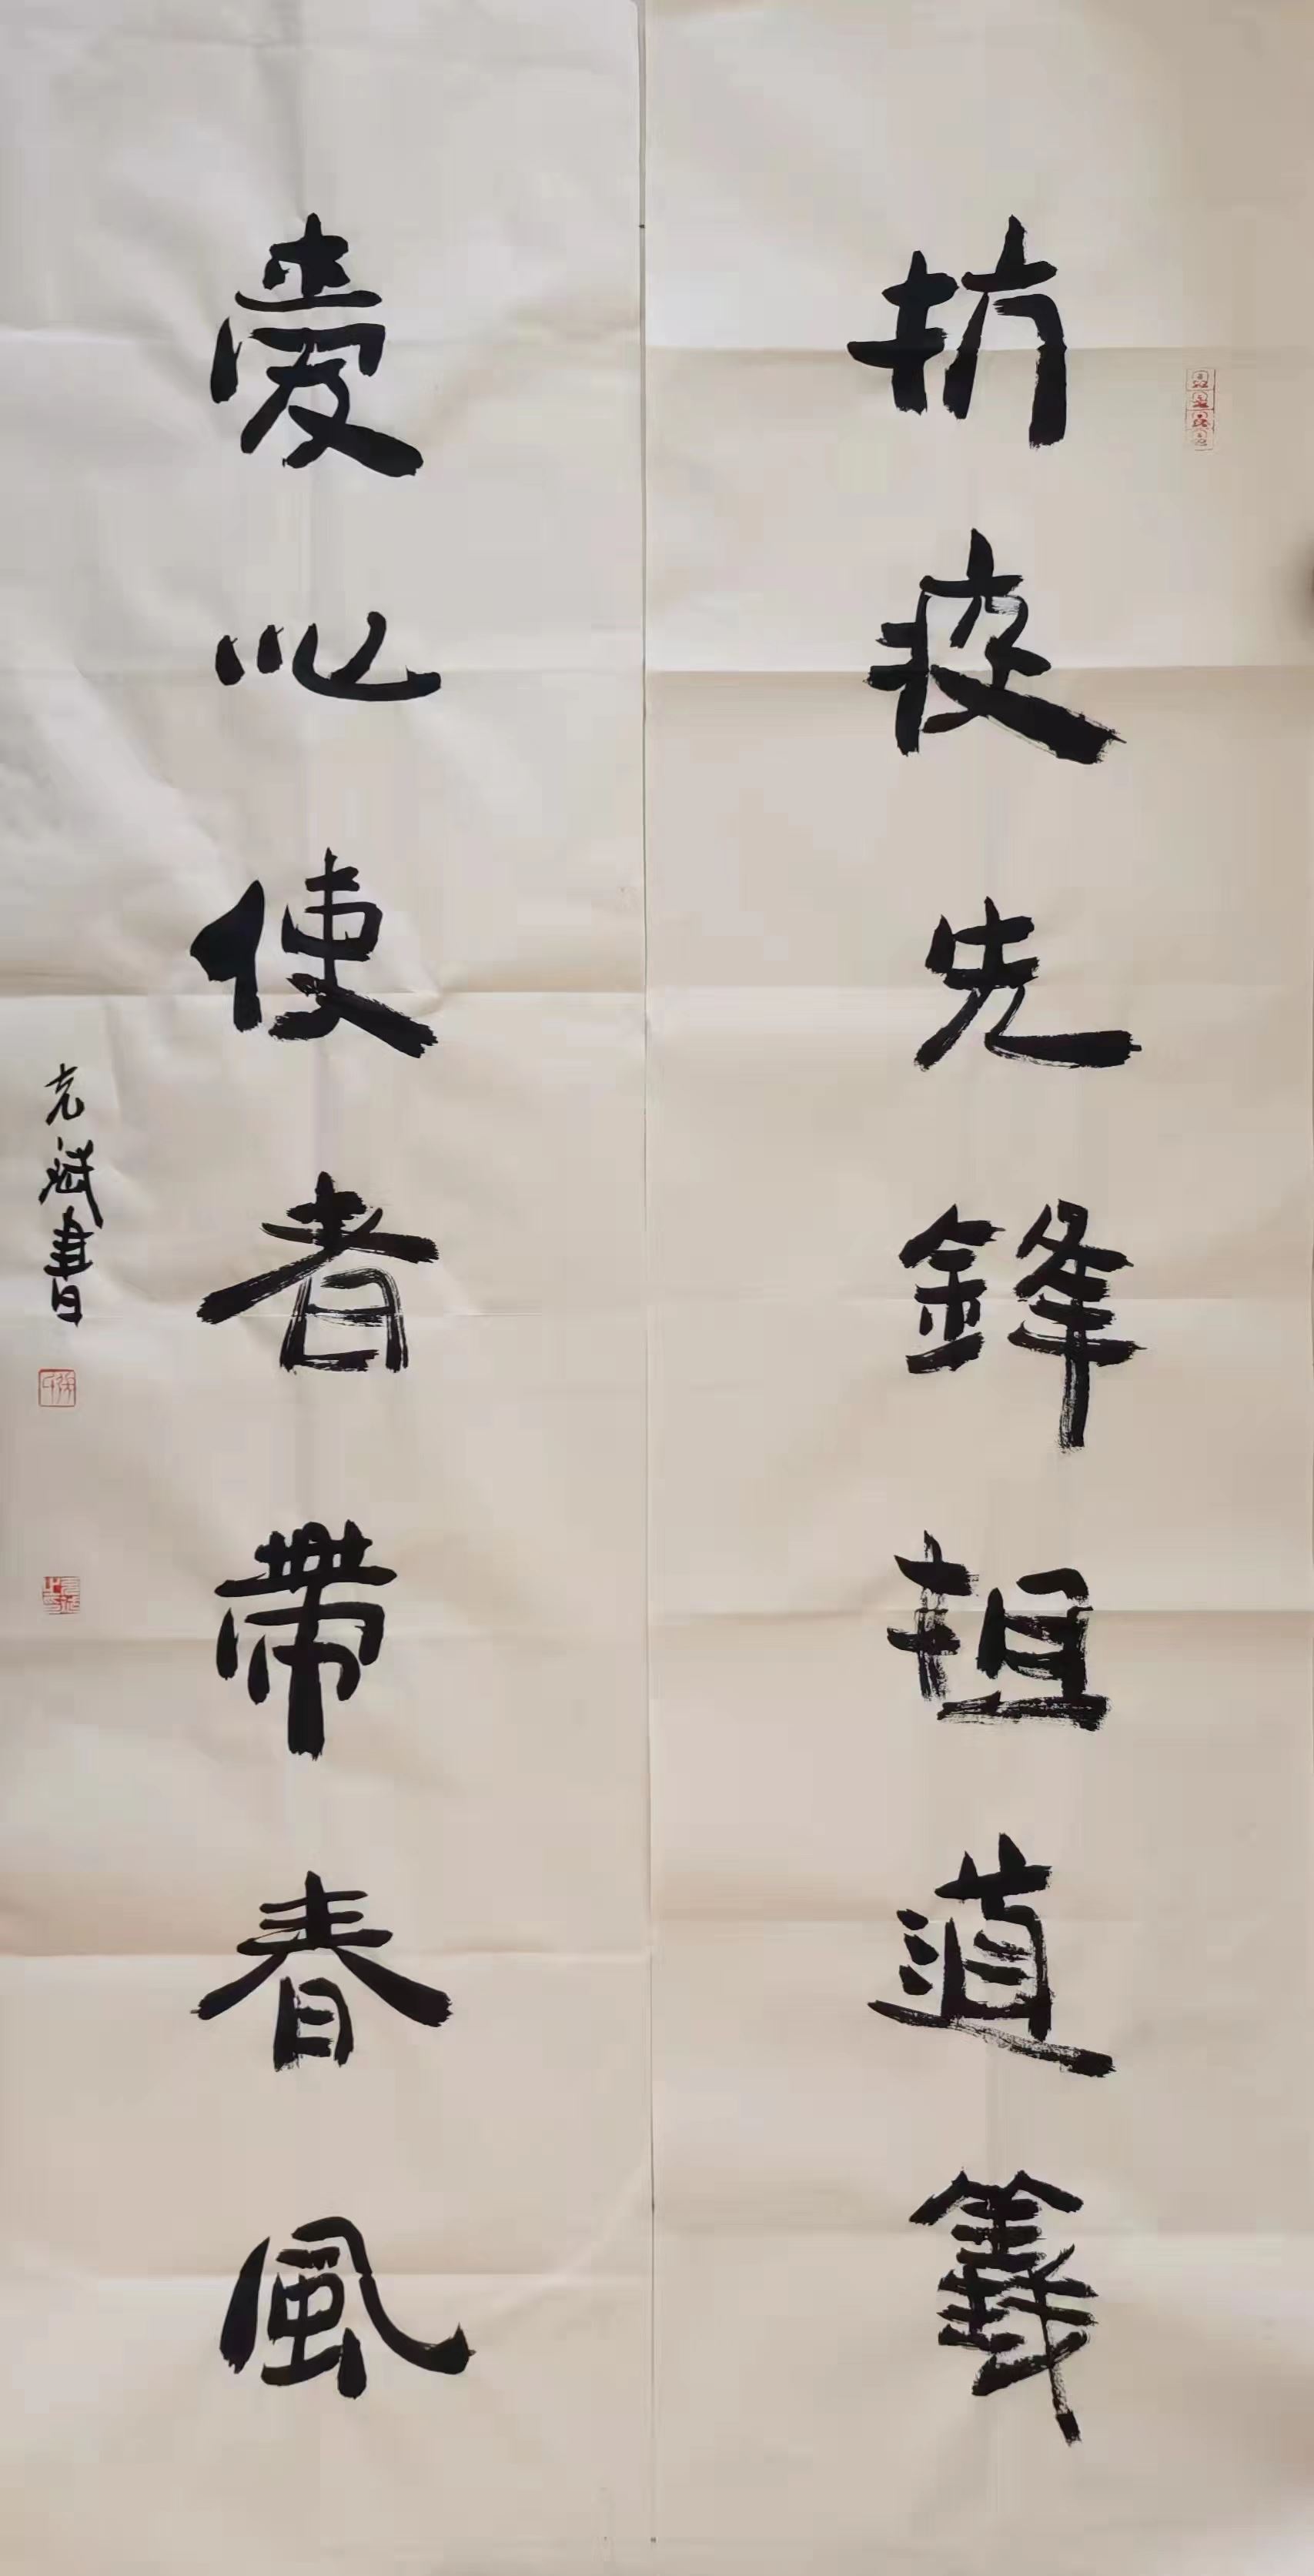 抗疫先鋒担道義
愛心使者帶春風
克斌書